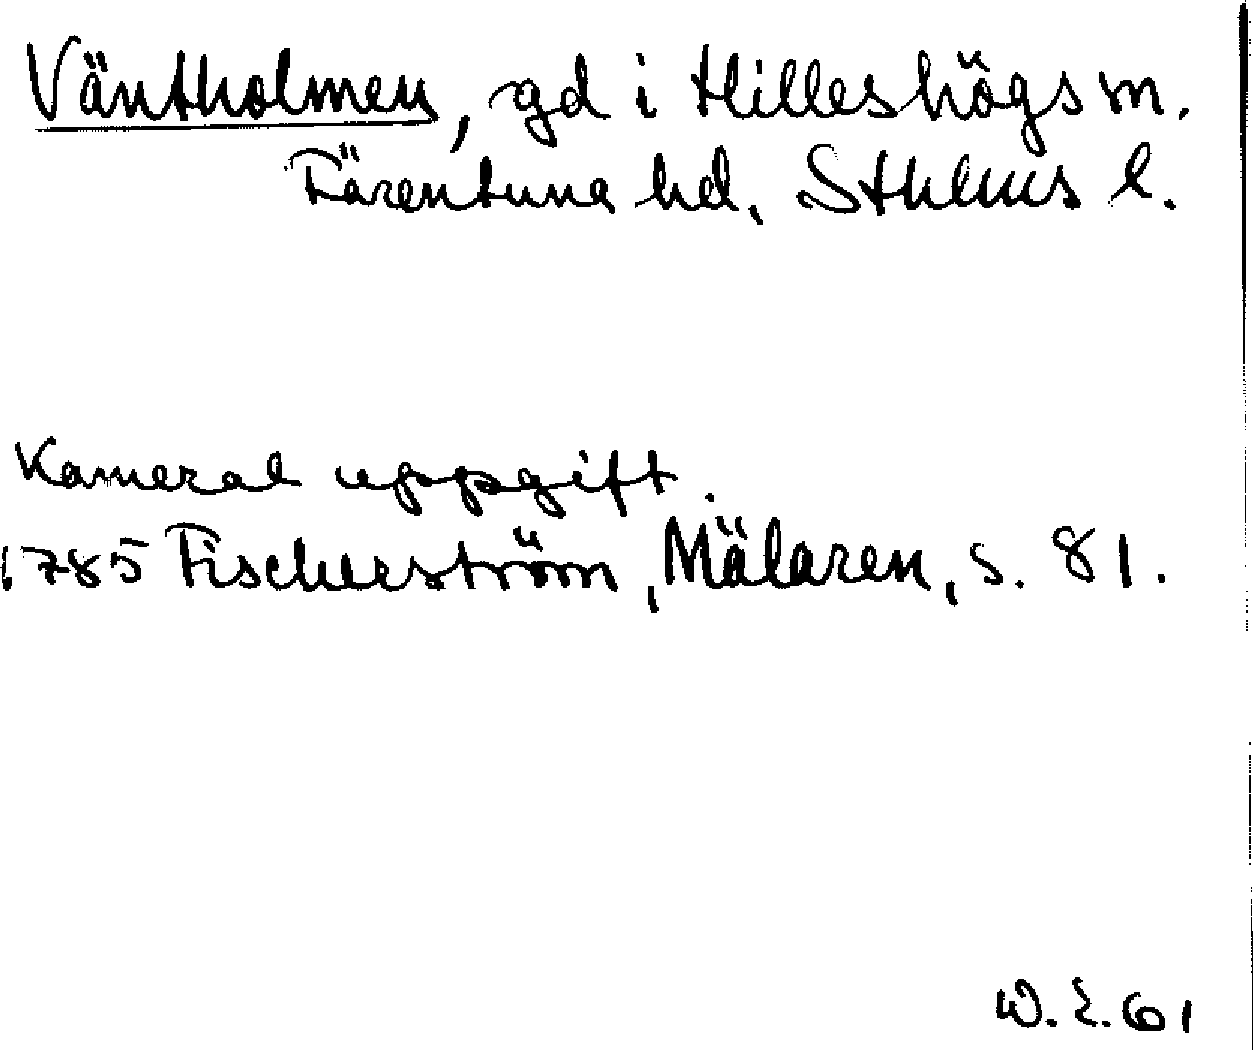 Väntholmen, gd i Hilleshögs m.
Färentuna hd, Sthlms l.
Kameral uppgift.
1785 Fischerström, Mälaren, s. 81.
W. E. 61